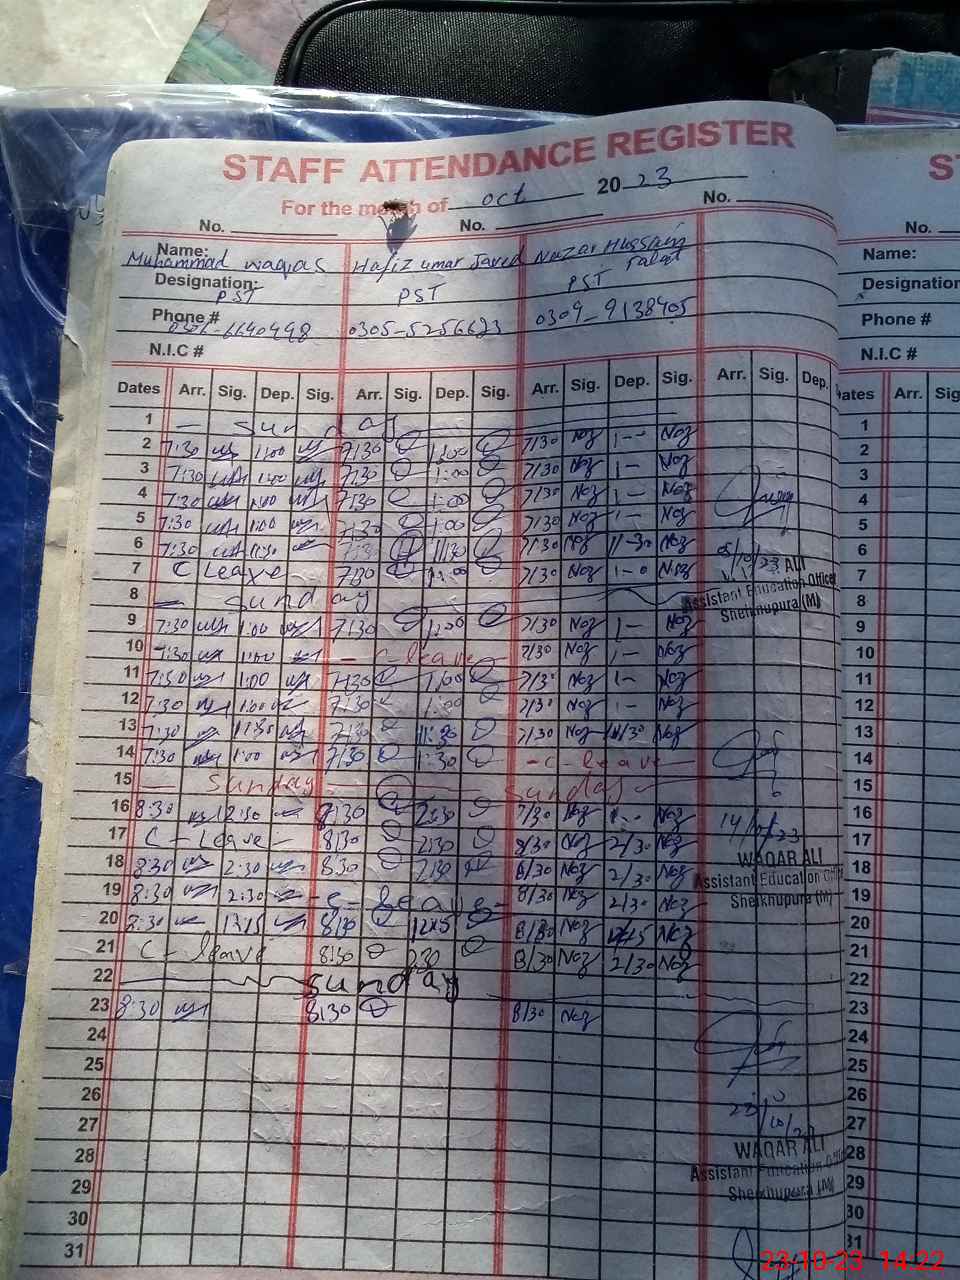 STAFF ATTENDANCE REGISTER
For the month of Oct 2023
No. No. No.
Name: Muhammad Waqas Hafiz Umar Javed Nazar Hussain
Designation: PST PST PST
Phone # 0305-5256623 0309-9138405
N.I.C #
Dates Arr. Sig. Dep. Sig. Arr. Sig. Dep. Sig. Arr. Sig. Dep. Sig. Arr. Sig. Dep.
1 - Sunday
2 7:30 1:00 7:30 1:00 7/30 Noz 1-- Noz
3 7:30 1:00 7:30 1:00 7/30 Noz 1- Noz
4 7:30 1:00 7:30 1:00 7/30 Noz 1- Noz
5 7:30 1:00 7:30 1:00 7/30 Noz 1- Noz
6 7:30 11:30 7:30 11:30 7/30 Noz 11-30 Noz
7 C Leave 7:30 7/30 Noz Noz
WAQAR ALI
Assistant Education Officer
Sheikhupura (M)
8 - Sunday
9 7:30 1:00 7:30 1:00 7/30 Noz 1- Noz
10 7:30 1:00 - C-leave 7/30 Noz 1- Noz
11 7:30 1:00 7:30 1:00 7/30 Noz 1- Noz
12 7:30 1:00 7:30 1:00 7/30 Noz 1- Noz
13 7:30 11:30 7:30 11:30 7/30 Noz 11/30 Noz
14 7:30 1:00 7:30 1:30 -C-leave
15 - Sunday - Sunday
16 8:30 2:30 8:30 2:30 7/30 Noz Noz
14/10/23
17 C-Leave- 8:30 2:30 8/30 Noz 2/30 Noz
WAQAR ALI
18 8:30 2:30 8:30 2:30 8/30 Noz 2/30 Noz
Assistant Education Officer
19 8:30 2:30 -C-leave- 8/30 Noz 2/30 Noz
Sheikhupura (M)
20 8:30 12:15 8/30 Noz Noz
21 C-leave 8:30 2:30 8/30 Noz 2/30 Noz
22 Sunday
23 8:30 8:30 8/30 Noz
24
25
26
27
23/10/23
28
WAQAR ALI
29
Assistant Education Officer
Sheikhupura (M)
30
31
S
No.
Name:
Designation
Phone #
N.I.C #
Dates Arr. Sig
1
2
3
4
5
6
7
8
9
10
11
12
13
14
15
16
17
18
19
20
21
22
23
24
25
26
27
28
29
30
31
23-10-23 14:22